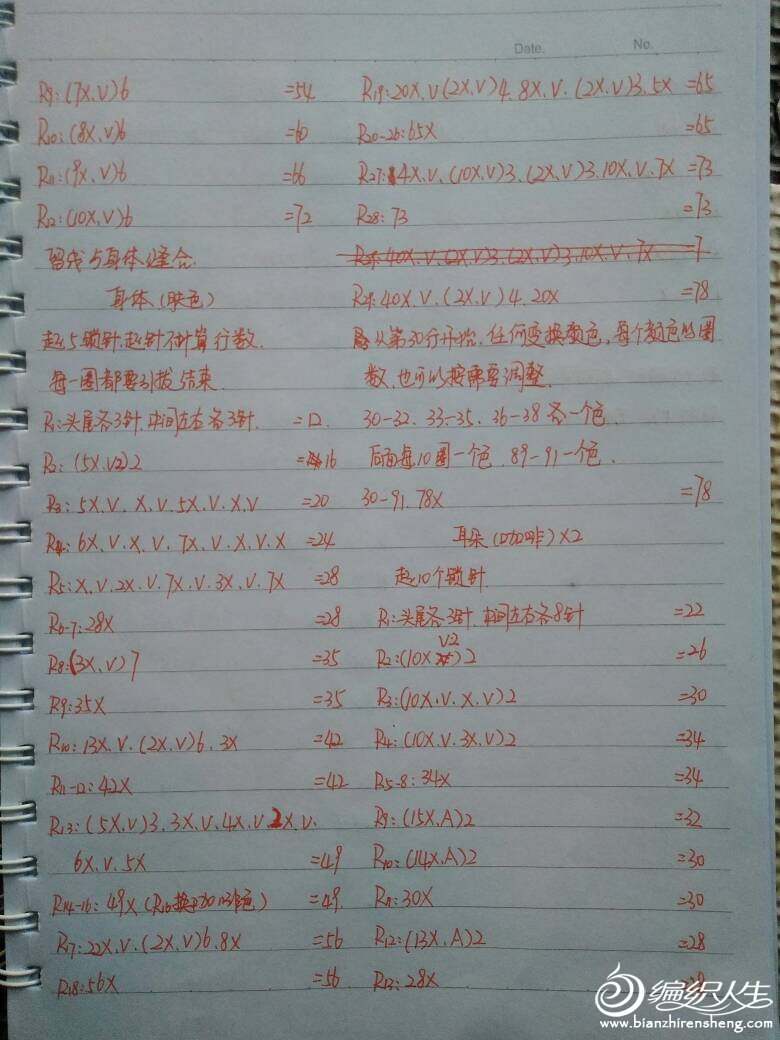 Date.
No.
R9:(7X.V)6 =54
R10:(8X.V)6 =60
R11:(9X.V)6 =66
R12:(10X.V)6 =72
留线与身体缝合.
身体(肤色)
起5锁针.起针不计算行数.
每一圈都要引拔结束.
R1:头尾各3针.中间左右各3针. =12
R2:(5X.V2)2 =16
R3:5X.V.X.V.5X.V.X.V =20
R4:6X.V.X.V.7X.V.X.V.X =24
R5:X.V.2X.V.7X.V.3X.V.7X =28
R6-7:28X =28
R8:(3X.V)7 =35
R9:35X =35
R10:13X.V.(2X.V)6.3X =42
R11-12:42X =42
R13:(5X.V)3.3X.V.4X.V.2X.V.
6X.V.5X =49
R14-16:49X(R16换 咖啡色) =49
R17:22X.V.(2X.V)6.8X =56
R18:56X =56
R19:20X.V(2X.V)4.8X.V.(2X.V)3.5X =65
R20-26:65X =65
R27:4X.V.(10X.V)3.(2X.V)3.10X.V.7X =73
R28:73 =73
R29:40X.V.(2X.V)4.20X =78
从第30行开始.任何变换颜色,每个颜色的圈
数,也可以按需要调整.
30-32.33-35.36-38各一个色.
后面每10圈一个色.89-91一个色.
30-91.78X =78
耳朵(咖啡)X2
起10个锁针
R1:头尾各3针.中间左右各8针 =22
R2:(10X V2)2 =26
R3:(10X.V.X.V)2 =30
R4:(10X.V.3X.V)2 =34
R5-8:34X =34
R9:(15X.A)2 =32
R10:(14X.A)2 =30
R11:30X =30
R12:(13X.A)2 =28
R13:28X
编织人生
www.bianzhirensheng.com